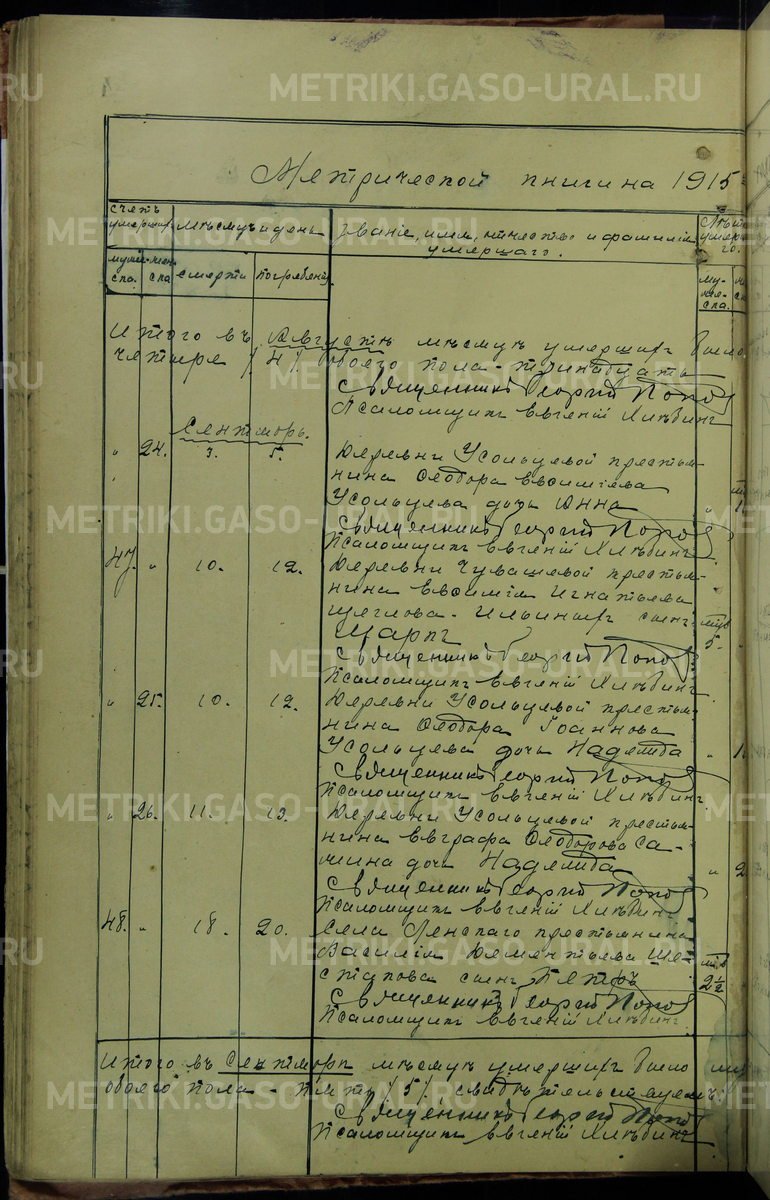 METRIKI.GASO-URAL.RU
Метрической книги на 1915
Счетъ умершихъ
мѣсяцъ и день
Званіе, имя, отчество и фамилія умершаго.
Лѣта умершаго.
мужеска.
женска
смерти
погребенія
мужеска.
Итого въ Августѣ мѣсяцѣ умершихъ было
четыре /4/ обоего пола - тринадцать
Священникъ Георгій Попов
Псаломщикъ Евгеній Хлѣбинъ
Сентябрь.
" 24. 3. 5. Деревни Усольцевой крестья-
нина Ѳеодора
Усольцева дочь Анна
Священникъ Георгій Попов
Псаломщикъ Евгеній Хлѣбинъ
47. " 10. 12. Деревни Чувашевой крестья-
нина Игнатьева
Щеглова сынъ
5.
Священникъ Георгій Попов
Псаломщикъ Евгеній Хлѣбинъ
" 25. 10. 12. Деревни Усольцевой крестья-
нина Ѳеодора Іоаннова
Усольцева дочь Надежда
Священникъ Георгій Попов
Псаломщикъ Евгеній Хлѣбинъ
" 26. 11. 13. Деревни Усольцевой крестья-
нина Евграфа Ѳеодорова Са-
мина дочь Надежда
Священникъ Георгій Попов
Псаломщикъ Евгеній Хлѣбинъ
48. " 18. 20. Села Ленскаго крестьянина
Василія Дементьева Ше-
стакова сынъ Петръ 2 1/2
Священникъ Георгій Попов
Псаломщикъ Евгеній Хлѣбинъ
Итого въ Сентябрѣ мѣсяцѣ умершихъ было
обоего пола - пять /5/, свидѣтельствуемъ:
Священникъ Георгій Попов
Псаломщикъ Евгеній Хлѣбинъ